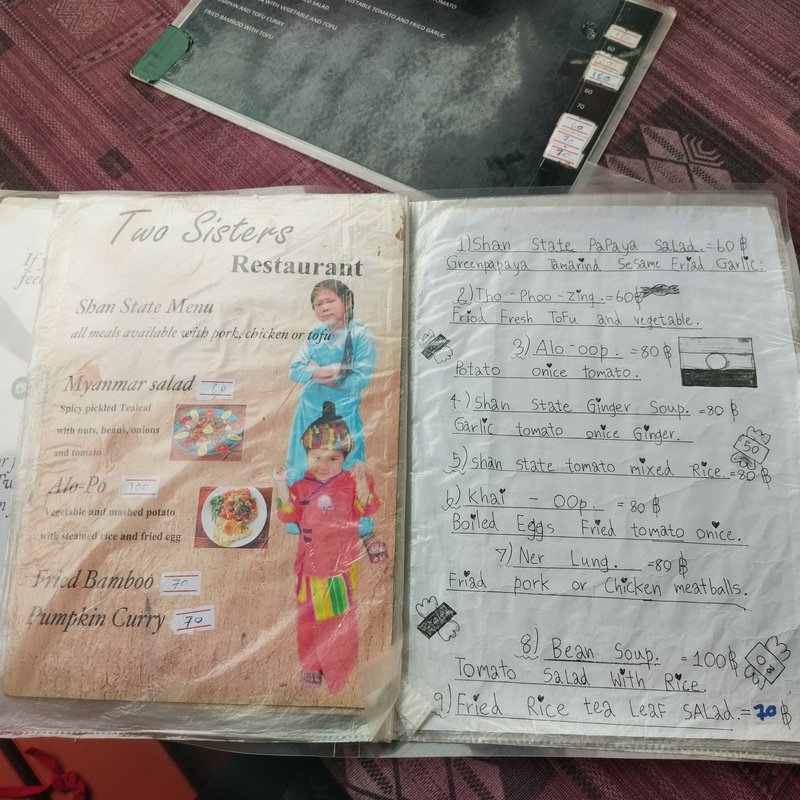 TOMATO
SALAD
VEGETABLE TOMATO AND FRIED GARLIC
WITH VEGETABLE AND TOFU
PUMPKIN AND TOFU CURRY
FRIED BAMBOO WITH TOFU
60
100
60
70
70
70
Two Sisters
Restaurant
Shan State Menu
all meals available with pork, chicken or tofu
Myanmar salad 80
Spicy pickled Tealeaf
with nuts, beans, onions
and tomato
Alo-Po 100
Vegetable and mashed potato
with steamed rice and fried egg
Fried Bamboo 70
Pumpkin Curry 70
1) Shan State PaPaya Salad. = 60 ฿
Greenpapaya Tamarind Sesame Friad Garlic.
2) Tho - Phoo - zing. = 60฿
Friod Fresh ToFu and vegetable.
3) Alo - oop. = 80 ฿
Potato onice tomato.
4) Shan State Ginger Soup. = 80 ฿
Garlic tomato onice Ginger.
50
5) Shan state tomato mixed Rice. = 80 ฿
6) Khai - OOp. = 80 ฿
Boiled Eggs Fried tomato onice.
7) Ner Lung. = 80 ฿
Friad pork or Chicken meatballs.
8) Bean Soup. = 100 ฿
Tomato Salad With Rice.
9) Fried Rice tea Leaf SALad. = 70 ฿